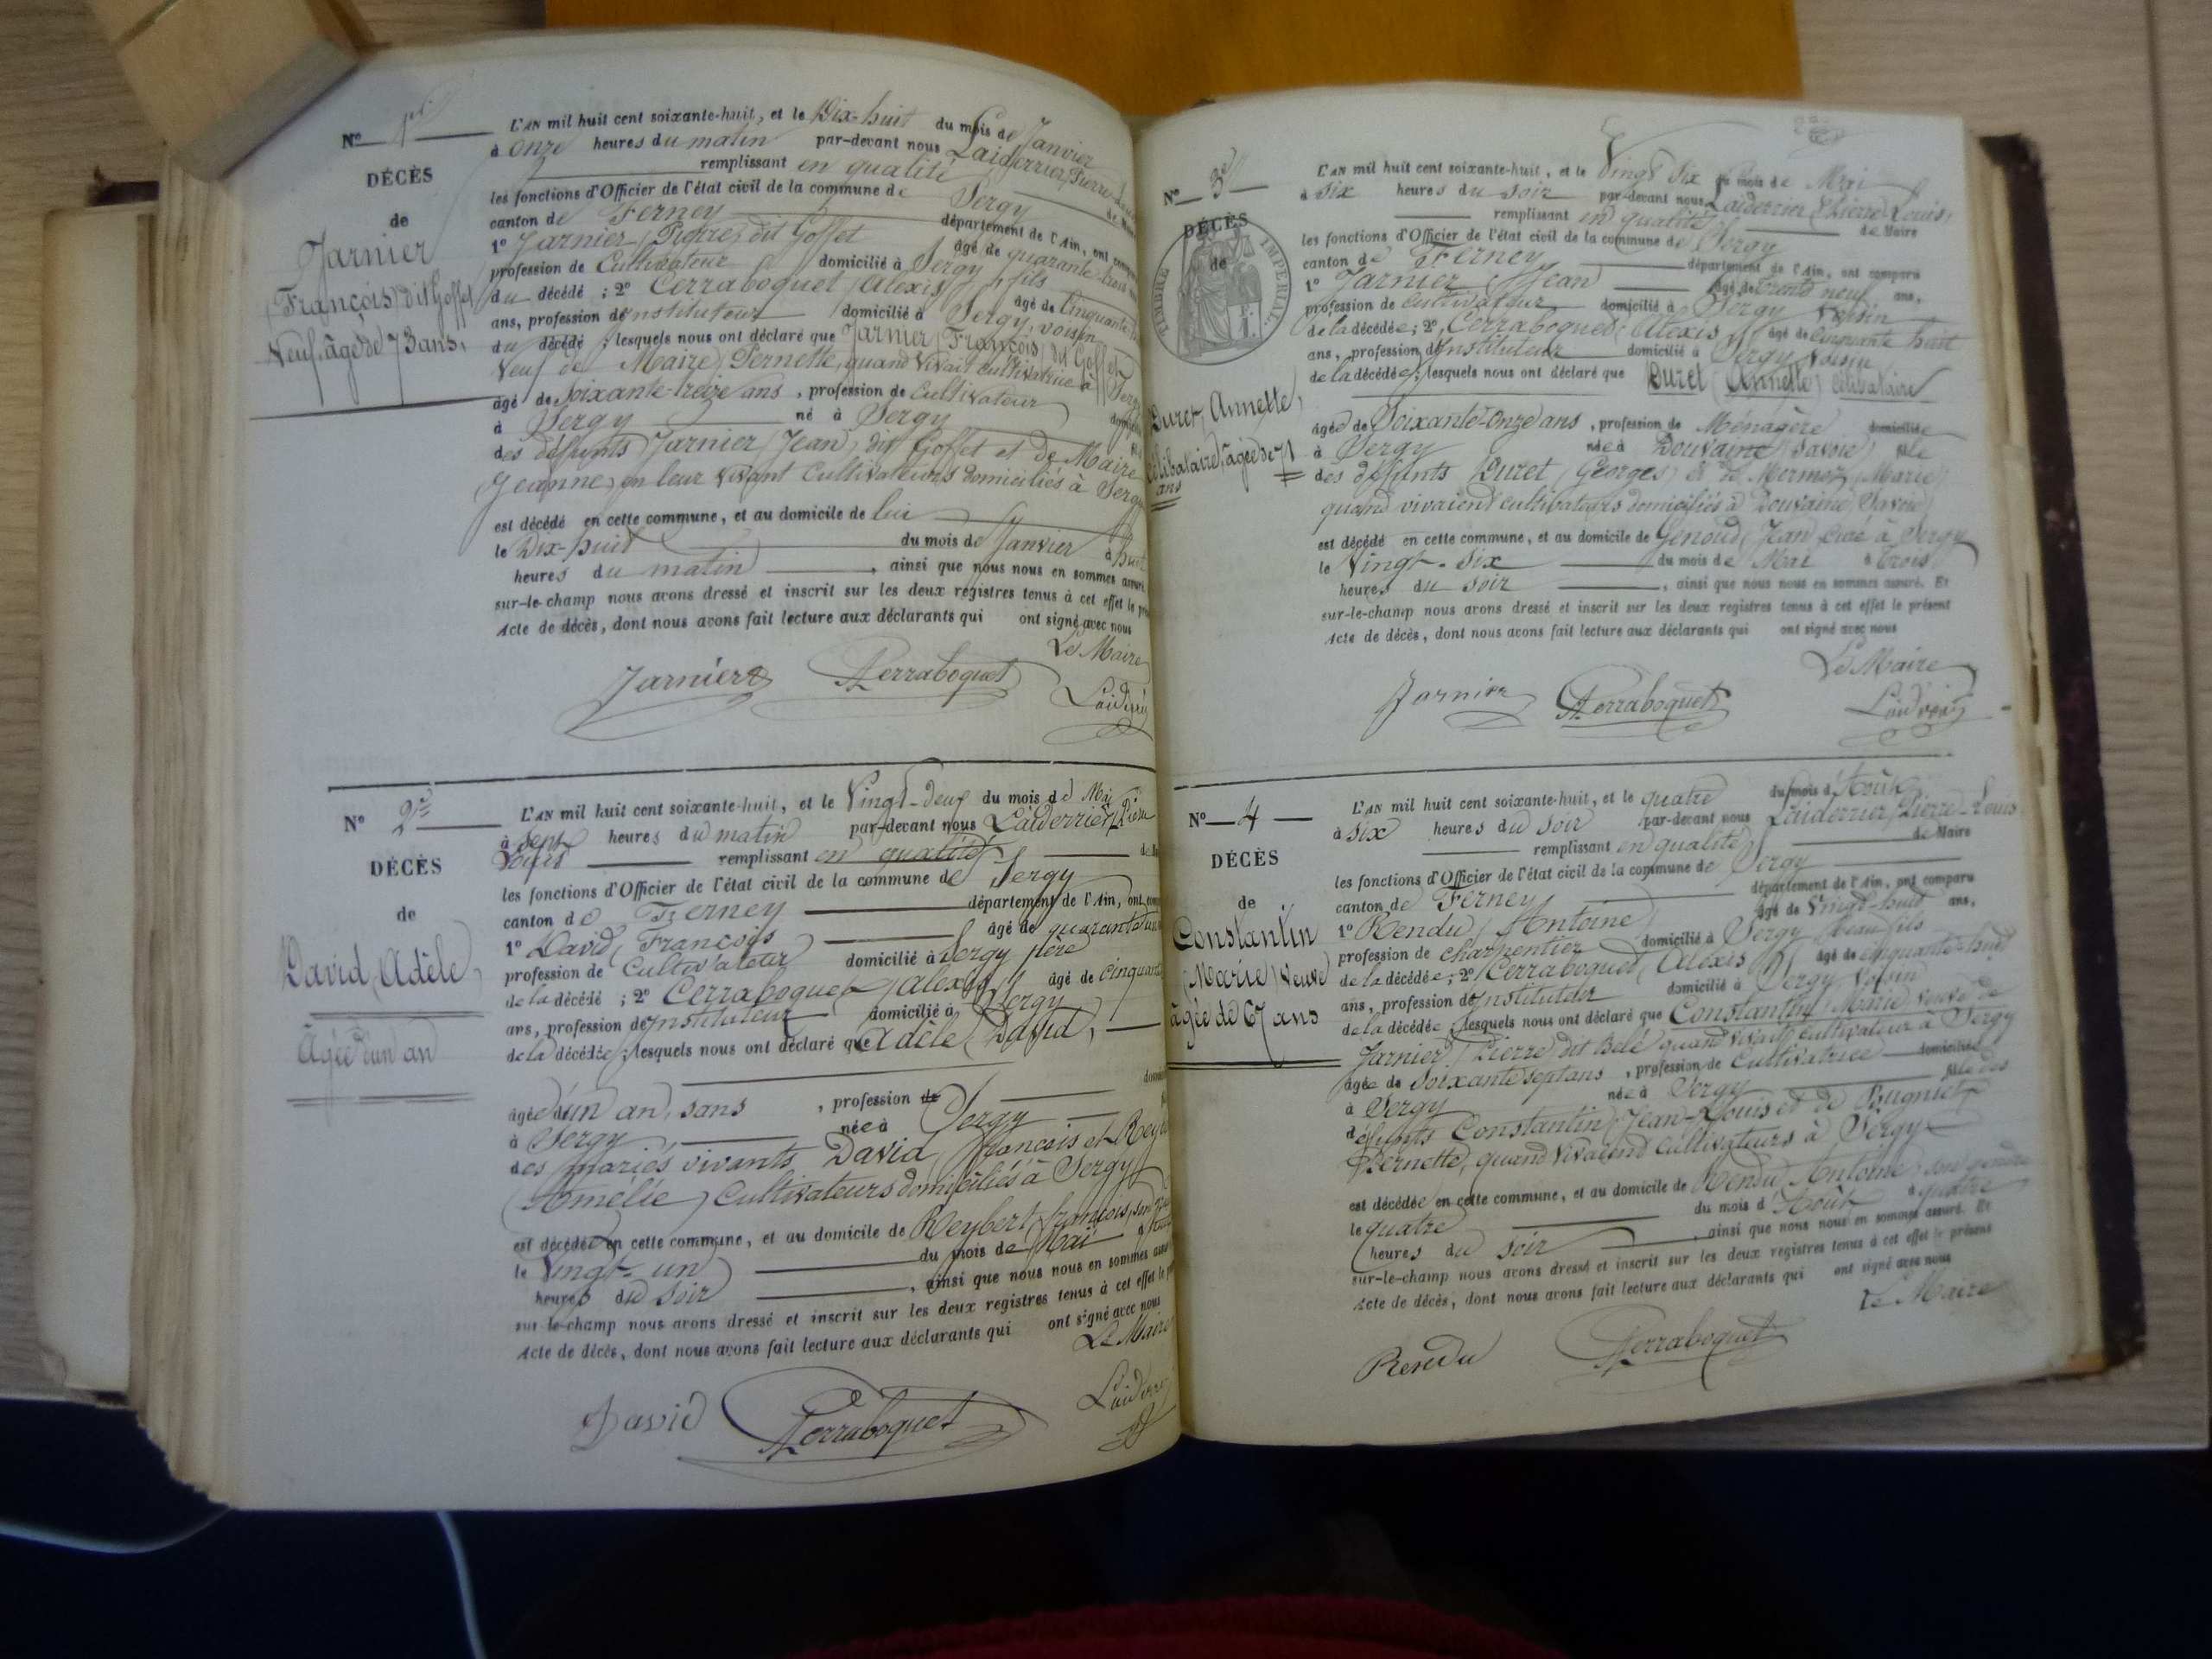 N° 1er
DÉCÈS
de
Jarnier
(François) dit Goffet
Veuf, âgé de 73 ans.
L'AN mil huit cent soixante-huit, et le Dix-huit du mois de Janvier
à onze heures du matin par-devant nous Laiderrier, Pierre-Louis
remplissant en qualité de Maire
les fonctions d'Officier de l'état civil de la commune de Sergy
canton de Ferney département de l'Ain, ont comparu
1° Jarnier (Pierre) dit Goffet âgé de quarante-trois
profession de Cultivateur domicilié à Sergy, fils
du décédé ; 2° Perraboquet (Alexis) âgé de Cinquante
ans, profession d'Instituteur domicilié à Sergy, voisin
du décédé ; lesquels nous ont déclaré que Jarnier (François) dit Goffet
Veuf de Maire, Pernette, quand vivait cultivatrice à Sergy
âgé de soixante-treize ans, profession de Cultivateur
à Sergy né à Sergy
des défunts Jarnier (Jean) dit Goffet et de Maire
(Jeanne) en leur vivant Cultivateurs domiciliés à Sergy
est décédé en cette commune, et au domicile de lui
le Dix-huit du mois de Janvier à huit
heures du matin, ainsi que nous nous en sommes assuré.
sur-le-champ nous avons dressé et inscrit sur les deux registres tenus à cet effet le
Acte de décès, dont nous avons fait lecture aux déclarants qui ont signé avec nous
Le Maire
Jarnier Perraboquet
N° 2e
DÉCÈS
de
David, Adèle,
Agée d'un an
L'AN mil huit cent soixante-huit, et le Vingt-deux du mois de Mai
à sept heures du matin par-devant nous Laiderrier, Pierre
Louis remplissant en qualité
les fonctions d'Officier de l'état civil de la commune de Sergy
canton de Ferney département de l'Ain, ont
1° David (François) âgé de quarante
profession de Cultivateur domicilié à Sergy père
de la décédé ; 2° Perraboquet (Alexis) âgé de cinquante
ans, profession d'Instituteur domicilié à Sergy
de la décédée ; lesquels nous ont déclaré que Adèle David,
âgée d'un an, sans, profession de
à Sergy née à Sergy
des mariés vivants David, François et
(Amélie) Cultivateurs domiciliés à Sergy
est décédée en cette commune, et au domicile de Reybert, François, son
le Vingt-un du mois de Mai à
heures du soir, ainsi que nous nous en sommes
sur-le-champ nous avons dressé et inscrit sur les deux registres tenus à cet effet le
Acte de décès, dont nous avons fait lecture aux déclarants qui ont signé avec nous
Le Maire
David Perraboquet
N° 3e
DÉCÈS
de
TIMBRE IMPÉRIAL.
Duret, Annette,
Célibataire, âgée de 71
ans
L'AN mil huit cent soixante-huit, et le Vingt Six du mois de Mai
à six heures du soir par-devant nous Laiderrier (Pierre-Louis)
remplissant en qualité de Maire
les fonctions d'Officier de l'état civil de la commune de Sergy
canton de Ferney département de l'Ain, ont comparu
1° Jarnier (Jean) âgé de trente neuf ans,
profession de cultivateur domicilié à Sergy Voisin
de la décédée ; 2° Perraboquet, Alexis âgé de cinquante huit
ans, profession d'Instituteur domicilié à Sergy Voisin
de la décédée ; lesquels nous ont déclaré que Duret (Annette) célibataire
âgée de Soixante-Onze ans, profession de Ménagère domiciliée
à Sergy née à Douvaine (Savoie) fille
des défunts Duret (Georges) & de Mermoz (Marie)
quand vivaient cultivateurs domiciliés à Douvaine (Savoie)
est décédé en cette commune, et au domicile de Genoud, Jean curé à Sergy
le Vingt-six du mois de Mai à trois
heures du soir, ainsi que nous nous en sommes assuré. Et
sur-le-champ nous avons dressé et inscrit sur les deux registres tenus à cet effet le présent
Acte de décès, dont nous avons fait lecture aux déclarants qui ont signé avec nous
Le Maire
Jarnier Perraboquet
N° 4
DÉCÈS
de
Constantin
(Marie) Veuve
âgée de 67 ans
L'AN mil huit cent soixante-huit, et le quatre du mois d'Août
à six heures du soir par-devant nous Laiderrier, Pierre-Louis
remplissant en qualité de Maire
les fonctions d'Officier de l'état civil de la commune de Sergy
canton de Ferney département de l'Ain, ont comparu
1° Rendu, Antoine âgé de Vingt-huit ans,
profession de charpentier domicilié à Sergy Beau fils
de la décédée ; 2° Perraboquet, Alexis âgé de cinquante-huit
ans, profession d'Instituteur domicilié à Sergy Voisin
de la décédée lesquels nous ont déclaré que Constantin, Marie veuve de
Jarnier, Pierre dit Belé quand vivait cultivateur à Sergy
âgée de Soixante sept ans, profession de Cultivatrice domiciliée
à Sergy née à Sergy fille des
défunts Constantin, Jean-Louis et de Bugniet
Pernette, quand vivaient cultivateurs à Sergy
est décédée en cette commune, et au domicile de Rendu, Antoine son gendre
le quatre du mois d'Août à quatre
heures du soir, ainsi que nous nous en sommes assuré. Et
sur-le-champ nous avons dressé et inscrit sur les deux registres tenus à cet effet le présent
Acte de décès, dont nous avons fait lecture aux déclarants qui ont signé avec nous
Le Maire
Rendu Perraboquet